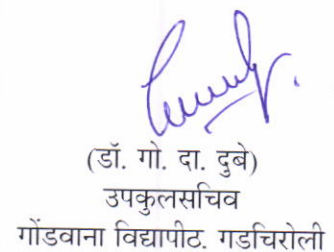 (डॉ. गो. दा. दुबे)
उपकुलसचिव
गोंडवाना विद्यापीठ, गडचिरोली